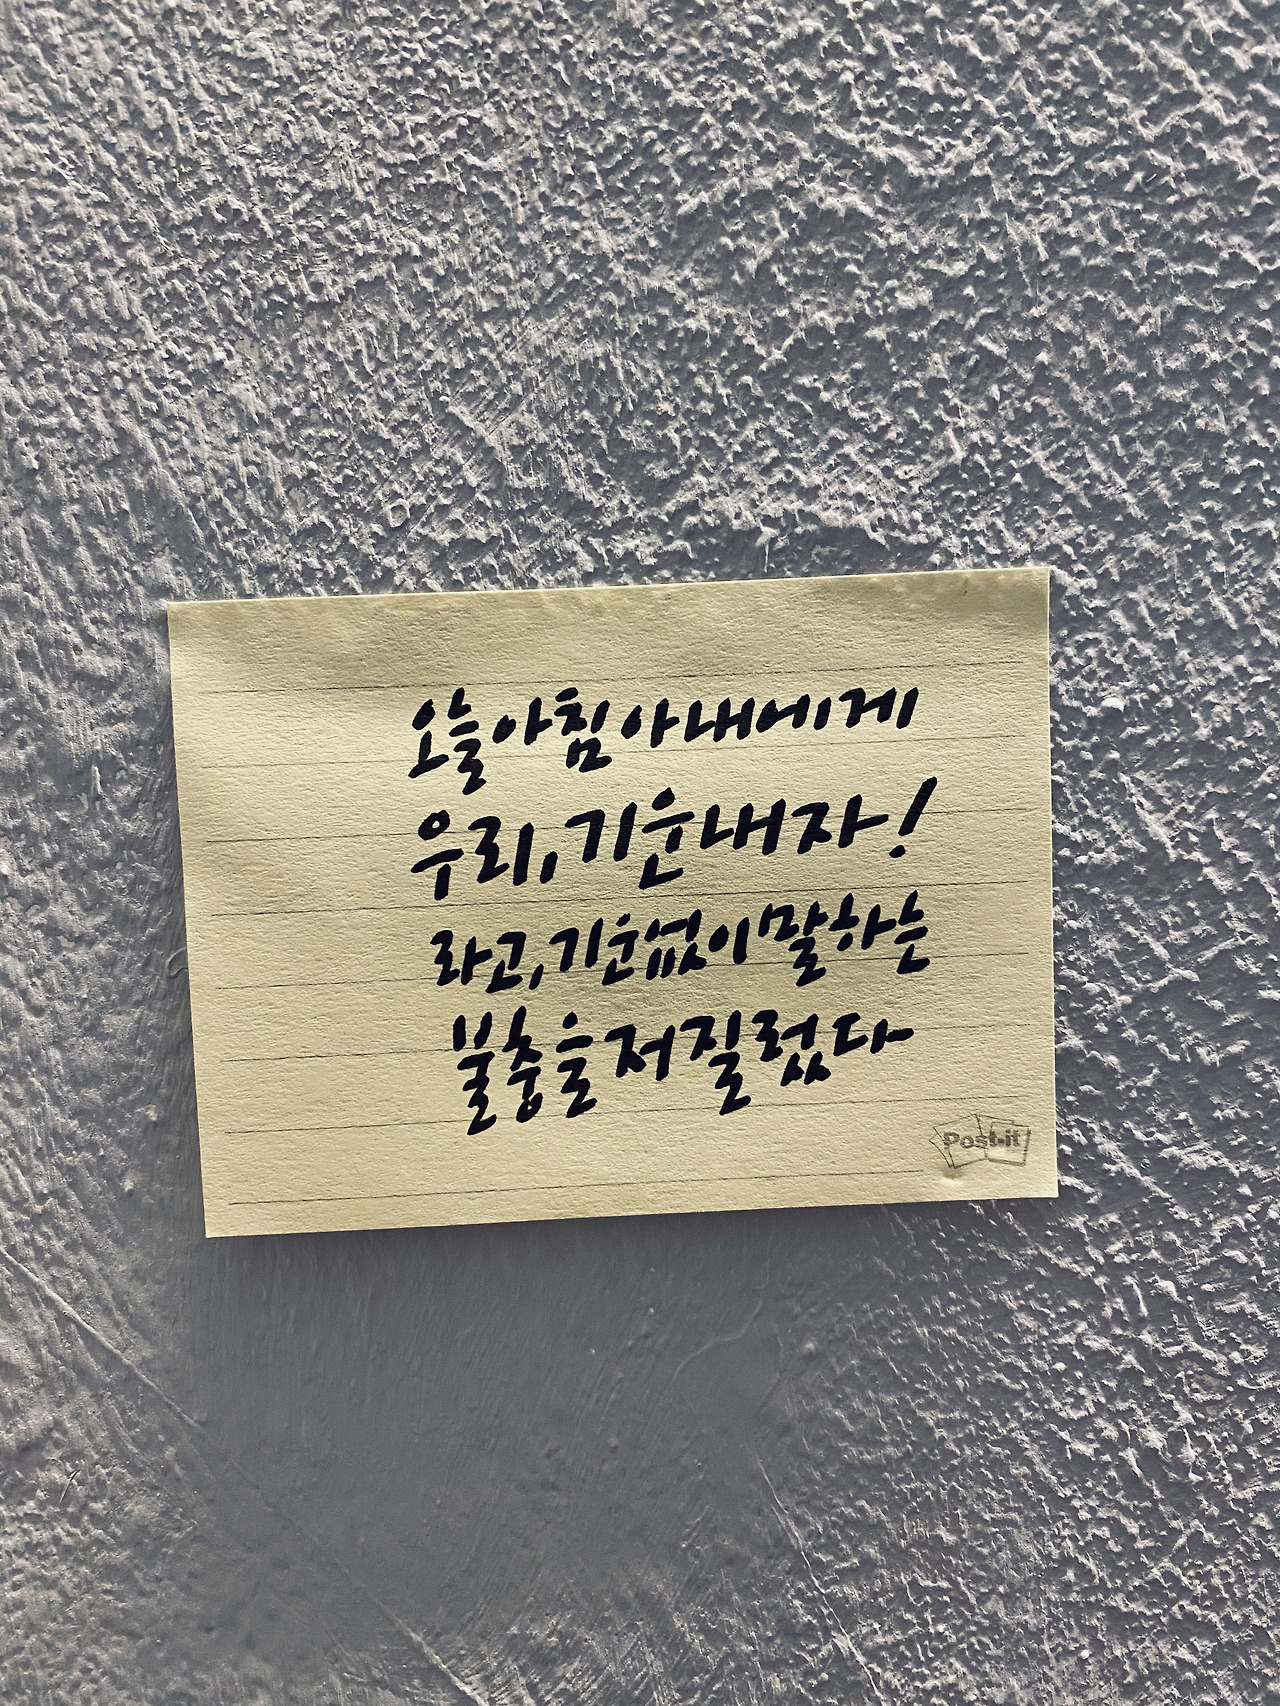 오늘 아침 아내에게
우리, 기운내자!
라고, 기운없이 말하는
불충을 저질렀다
Post-it